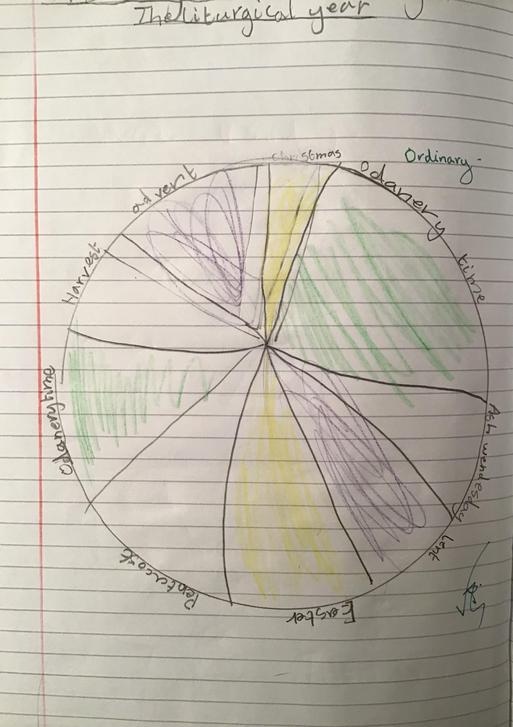 The liturgical year
Christmas
Ordinary -
Odanery time
Ash wendesday
Lent
Easter
Pentecost
Odanery time
Harvest
advent